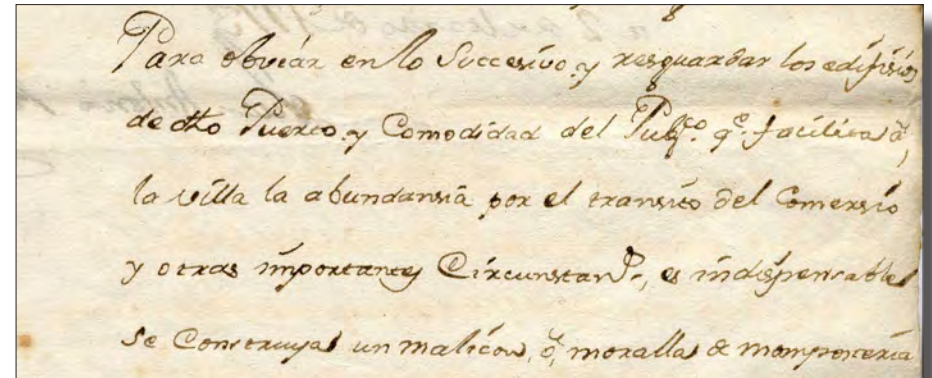 Para obviár en lo Succesivo y resguardar los edifisios
de dho Puerto y Comodidad del Pubco. qe. facilita â
la villa la abundansiâ por el transito del Comersio
y otras importantes Circunstans., es indispensable
se Construya un malicon, ô, moralla de mamposteria